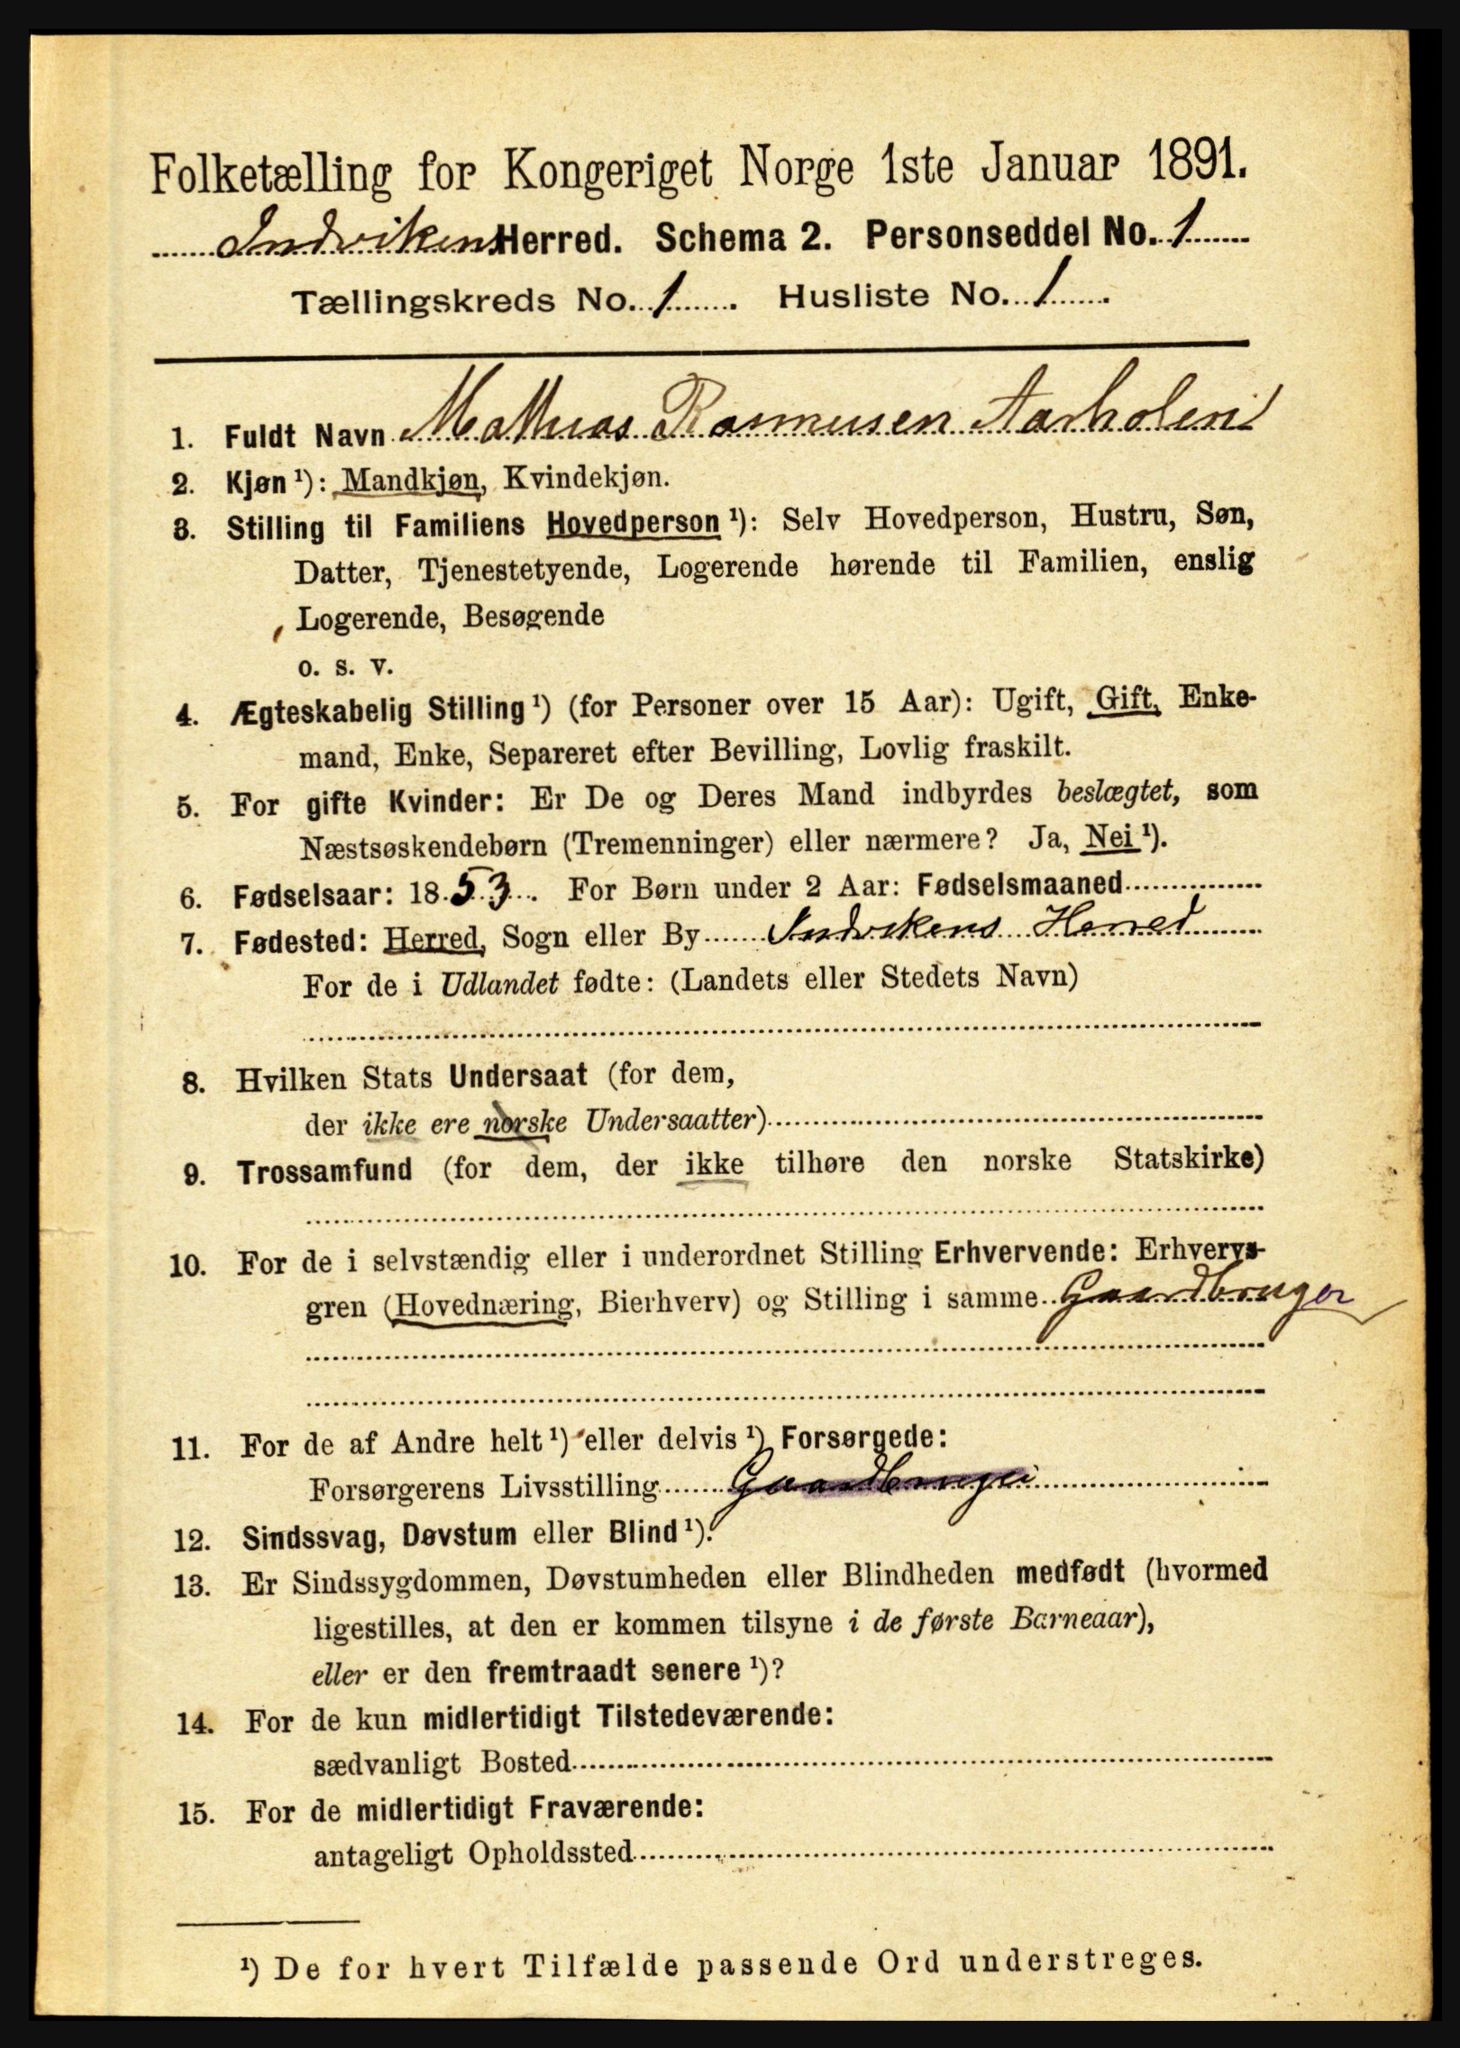 Folketælling for Kongeriget Norge 1ste Januar 1891.
Indvikens Herred. Schema 2. Personseddel No. 1
Tællingskreds No. 1. Husliste No. 1.
1. Fuldt Navn Mathias Rasmusen Aarholen
2. Kjøn¹): Mandkjøn, Kvindekjøn.
3. Stilling til Familiens Hovedperson¹): Selv Hovedperson, Hustru, Søn,
Datter, Tjenestetyende, Logerende hørende til Familien, enslig
Logerende, Besøgende
o. s. v.
4. Ægteskabelig Stilling¹) (for Personer over 15 Aar): Ugift, Gift, Enke-
mand, Enke, Separeret efter Bevilling, Lovlig fraskilt.
5. For gifte Kvinder: Er De og Deres Mand indbyrdes beslægtet, som
Næstsøskendebørn (Tremenninger) eller nærmere? Ja, Nei¹).
6. Fødselsaar: 1853. For Børn under 2 Aar: Fødselsmaaned
7. Fødested: Herred, Sogn eller By Indvikens Herred
For de i Udlandet fødte: (Landets eller Stedets Navn)
8. Hvilken Stats Undersaat (for dem,
der ikke ere norske Undersaatter)
9. Trossamfund (for dem, der ikke tilhøre den norske Statskirke)
10. For de i selvstændig eller i underordnet Stilling Erhvervende: Erhvervs-
gren (Hovednæring, Bierhverv) og Stilling i samme Gaardbruger
11. For de af Andre helt¹) eller delvis¹) Forsørgede:
Forsørgerens Livsstilling Gaardbruger
12. Sindssvag, Døvstum eller Blind¹).
13. Er Sindssygdommen, Døvstumheden eller Blindheden medfødt (hvormed
ligestilles, at den er kommen tilsyne i de første Barneaar),
eller er den fremtraadt senere¹)?
14. For de kun midlertidigt Tilstedeværende:
sædvanligt Bosted
15. For de midlertidigt Fraværende:
antageligt Opholdssted
¹) De for hvert Tilfælde passende Ord understreges.